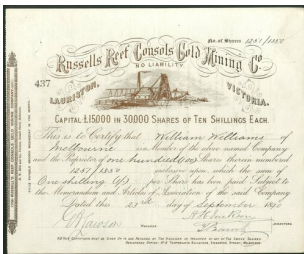 No. of Shares 1251/1350
Russells Reef Consols Gold Mining Co
NO LIABILITY
437
LAURISTON,
VICTORIA.
CAPITAL £15000 IN 30000 SHARES OF TEN SHILLINGS EACH.
This is to Certify that William Williams of
Melbourne is a Member of the above named Company
and the Proprietor of one hundred (100) Shares therein numbered
1251/1350 inclusive upon which the sum of
One shilling per Share has been paid Subject to
the Memorandum and Articles of Association of the said Company
Dated this 23rd day of September
MANAGER
DIRECTORS